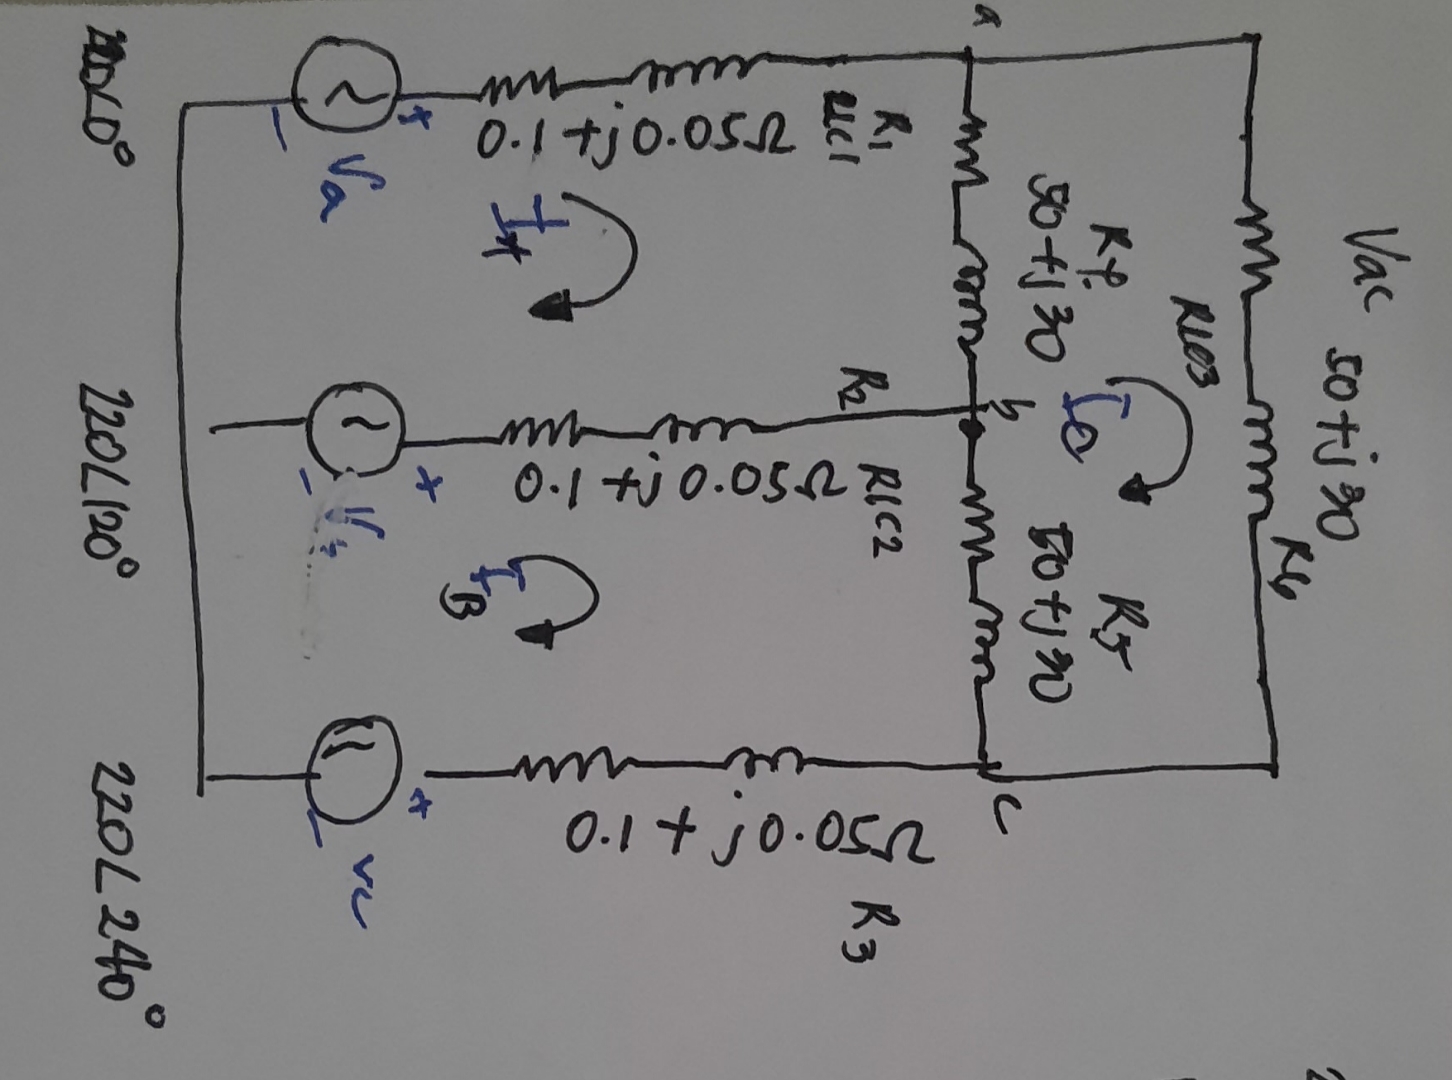 Vac 50+j30
R6
RL03
R4
50+j30
R5
50+j30
IO
a
b
c
R1
RLC1
0.1+j0.05Ω
R2
RLC2
0.1+j0.05Ω
R3
0.1+j0.05Ω
IA
IB
+
-
Va
+
-
+
-
Vc
∠0°
220∠120°
220∠240°